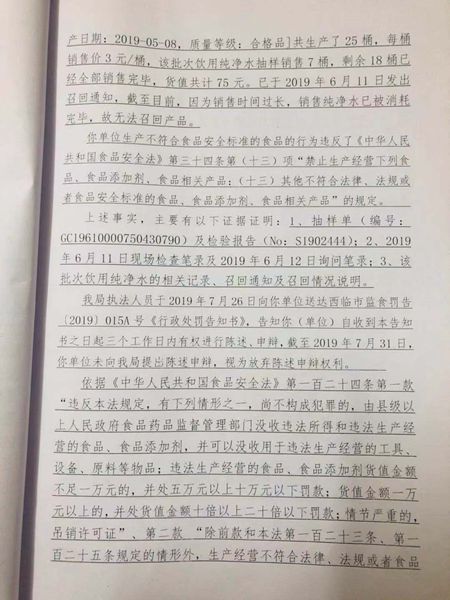 产日期：2019-05-08，质量等级：合格品]共生产了 25 桶，每桶
销售价 3 元/桶，该批次饮用纯净水抽样销售 7 桶，剩余 18 桶已
经全部销售完毕，货值共计 75 元。已于 2019 年 6 月 11 日发出
召回通知，截至目前，因为销售时间过长，销售纯净水已被消耗
完毕，故无法召回产品。
你单位生产不符合食品安全标准的食品的行为违反了《中华人民
共和国食品安全法》第三十四条第（十三）项“禁止生产经营下列食
品、食品添加剂、食品相关产品：（十三）其他不符合法律、法规或
者食品安全标准的食品、食品添加剂、食品相关产品”的规定。
上述事实，主要有以下证据证明：1、抽样单（编号：
GC19610000750430790）及检验报告（No: SI902444）；2、2019
年 6 月 11 日现场检查笔录及 2019 年 6 月 12 日询问笔录；3、该
批次饮用纯净水的相关记录、召回通知及召回情况说明。
我局执法人员于 2019 年 7 月 26 日向你单位送达西临市监食罚告
〔2019〕015A 号《行政处罚告知书》，告知你（单位）自收到本告知
书之日起三个工作日内有权进行陈述、申辩，截至 2019 年 7 月 31 日，
你单位未向我局提出陈述申辩，视为放弃陈述申辩权利。
依据《中华人民共和国食品安全法》第一百二十四条第一款
“违反本法规定，有下列情形之一，尚不构成犯罪的，由县级以
上人民政府食品药品监督管理部门没收违法所得和违法生产经
营的食品、食品添加剂，并可以没收用于违法生产经营的工具、
设备、原料等物品；违法生产经营的食品、食品添加剂货值金额
不足一万元的，并处五万元以上十万元以下罚款；货值金额一万
元以上的，并处货值金额十倍以上二十倍以下罚款；情节严重的，
吊销许可证”、第二款 “除前款和本法第一百二十三条、第一
百二十五条规定的情形外，生产经营不符合法律、法规或者食品